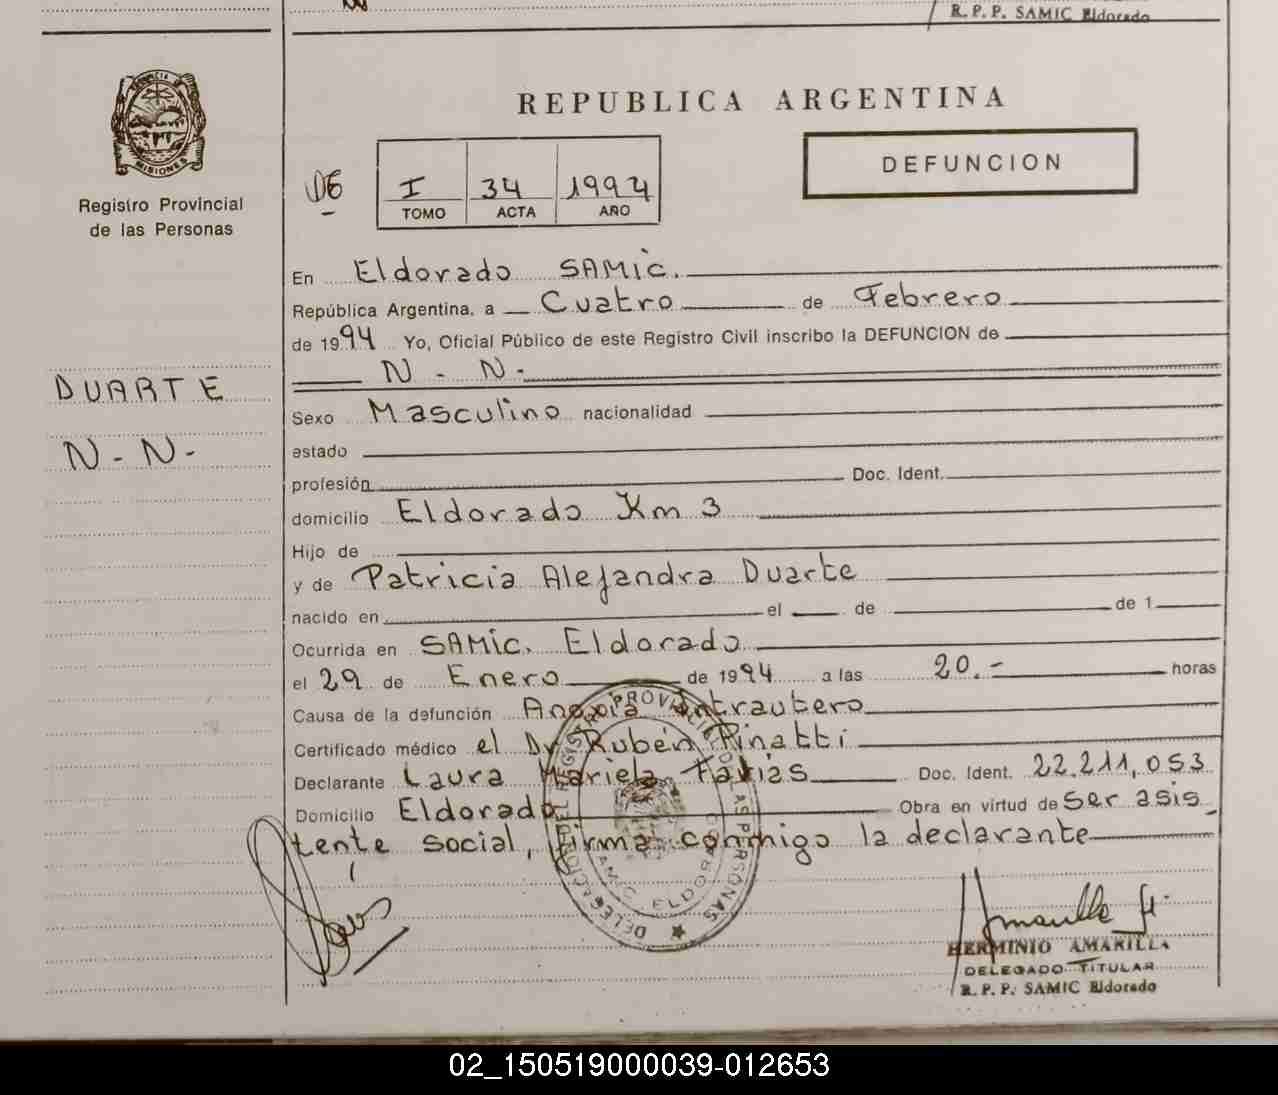 R. P. P. SAMIC Eldorado
PROVINCIA DE
MISIONES
Registro Provincial
de las Personas
REPUBLICA ARGENTINA
DEFUNCION
DE
I 34 1994
TOMO ACTA AÑO
En Eldorado SAMIC.
República Argentina, a Cuatro de Febrero
de 1994 Yo, Oficial Público de este Registro Civil inscribo la DEFUNCION de
N - N -
DUARTE
N - N -
Sexo Masculino nacionalidad
estado
profesión Doc. Ident.
domicilio Eldorado Km 3
Hijo de
y de Patricia Alejandra Duarte
nacido en el de de 1
Ocurrida en SAMIC. Eldorado
el 29 de Enero de 1994 a las 20.- horas
Causa de la defunción Anoxia Intrautero
Certificado médico el Dr Rubén Pinatti
Declarante Laura Mariela Farias Doc. Ident. 22.211,053
Domicilio Eldorado Obra en virtud de Ser asis_
tente social, firma conmigo la declarante
DELEGACION DEL REGISTRO PROVINCIAL DE LAS PERSONAS
SAMIC ELDORADO
HERMINIO AMARILLA
DELEGADO TITULAR
R. P. P. SAMIC Eldorado
02_150519000039-012653